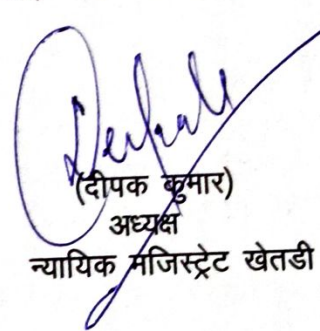 Deepak
(दीपक कुमार)
अध्यक्ष
न्यायिक मजिस्ट्रेट खेतडी